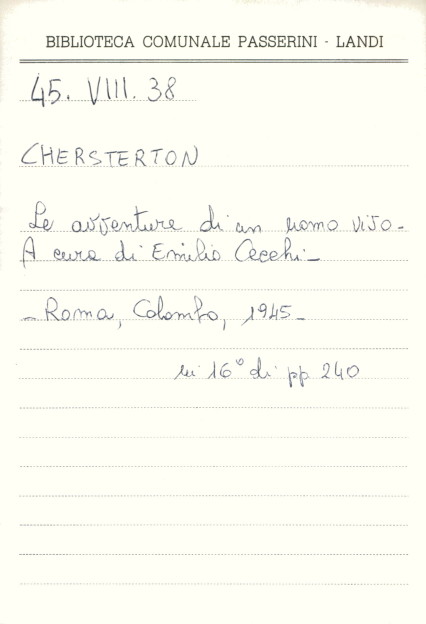 BIBLIOTECA COMUNALE PASSERINI - LANDI
45. VIII. 38
CHERSTERTON
Le avventure di un uomo vivo -
A cura di Emilio Cecchi -
- Roma, Colombo, 1945 -
in 16° di pp 240